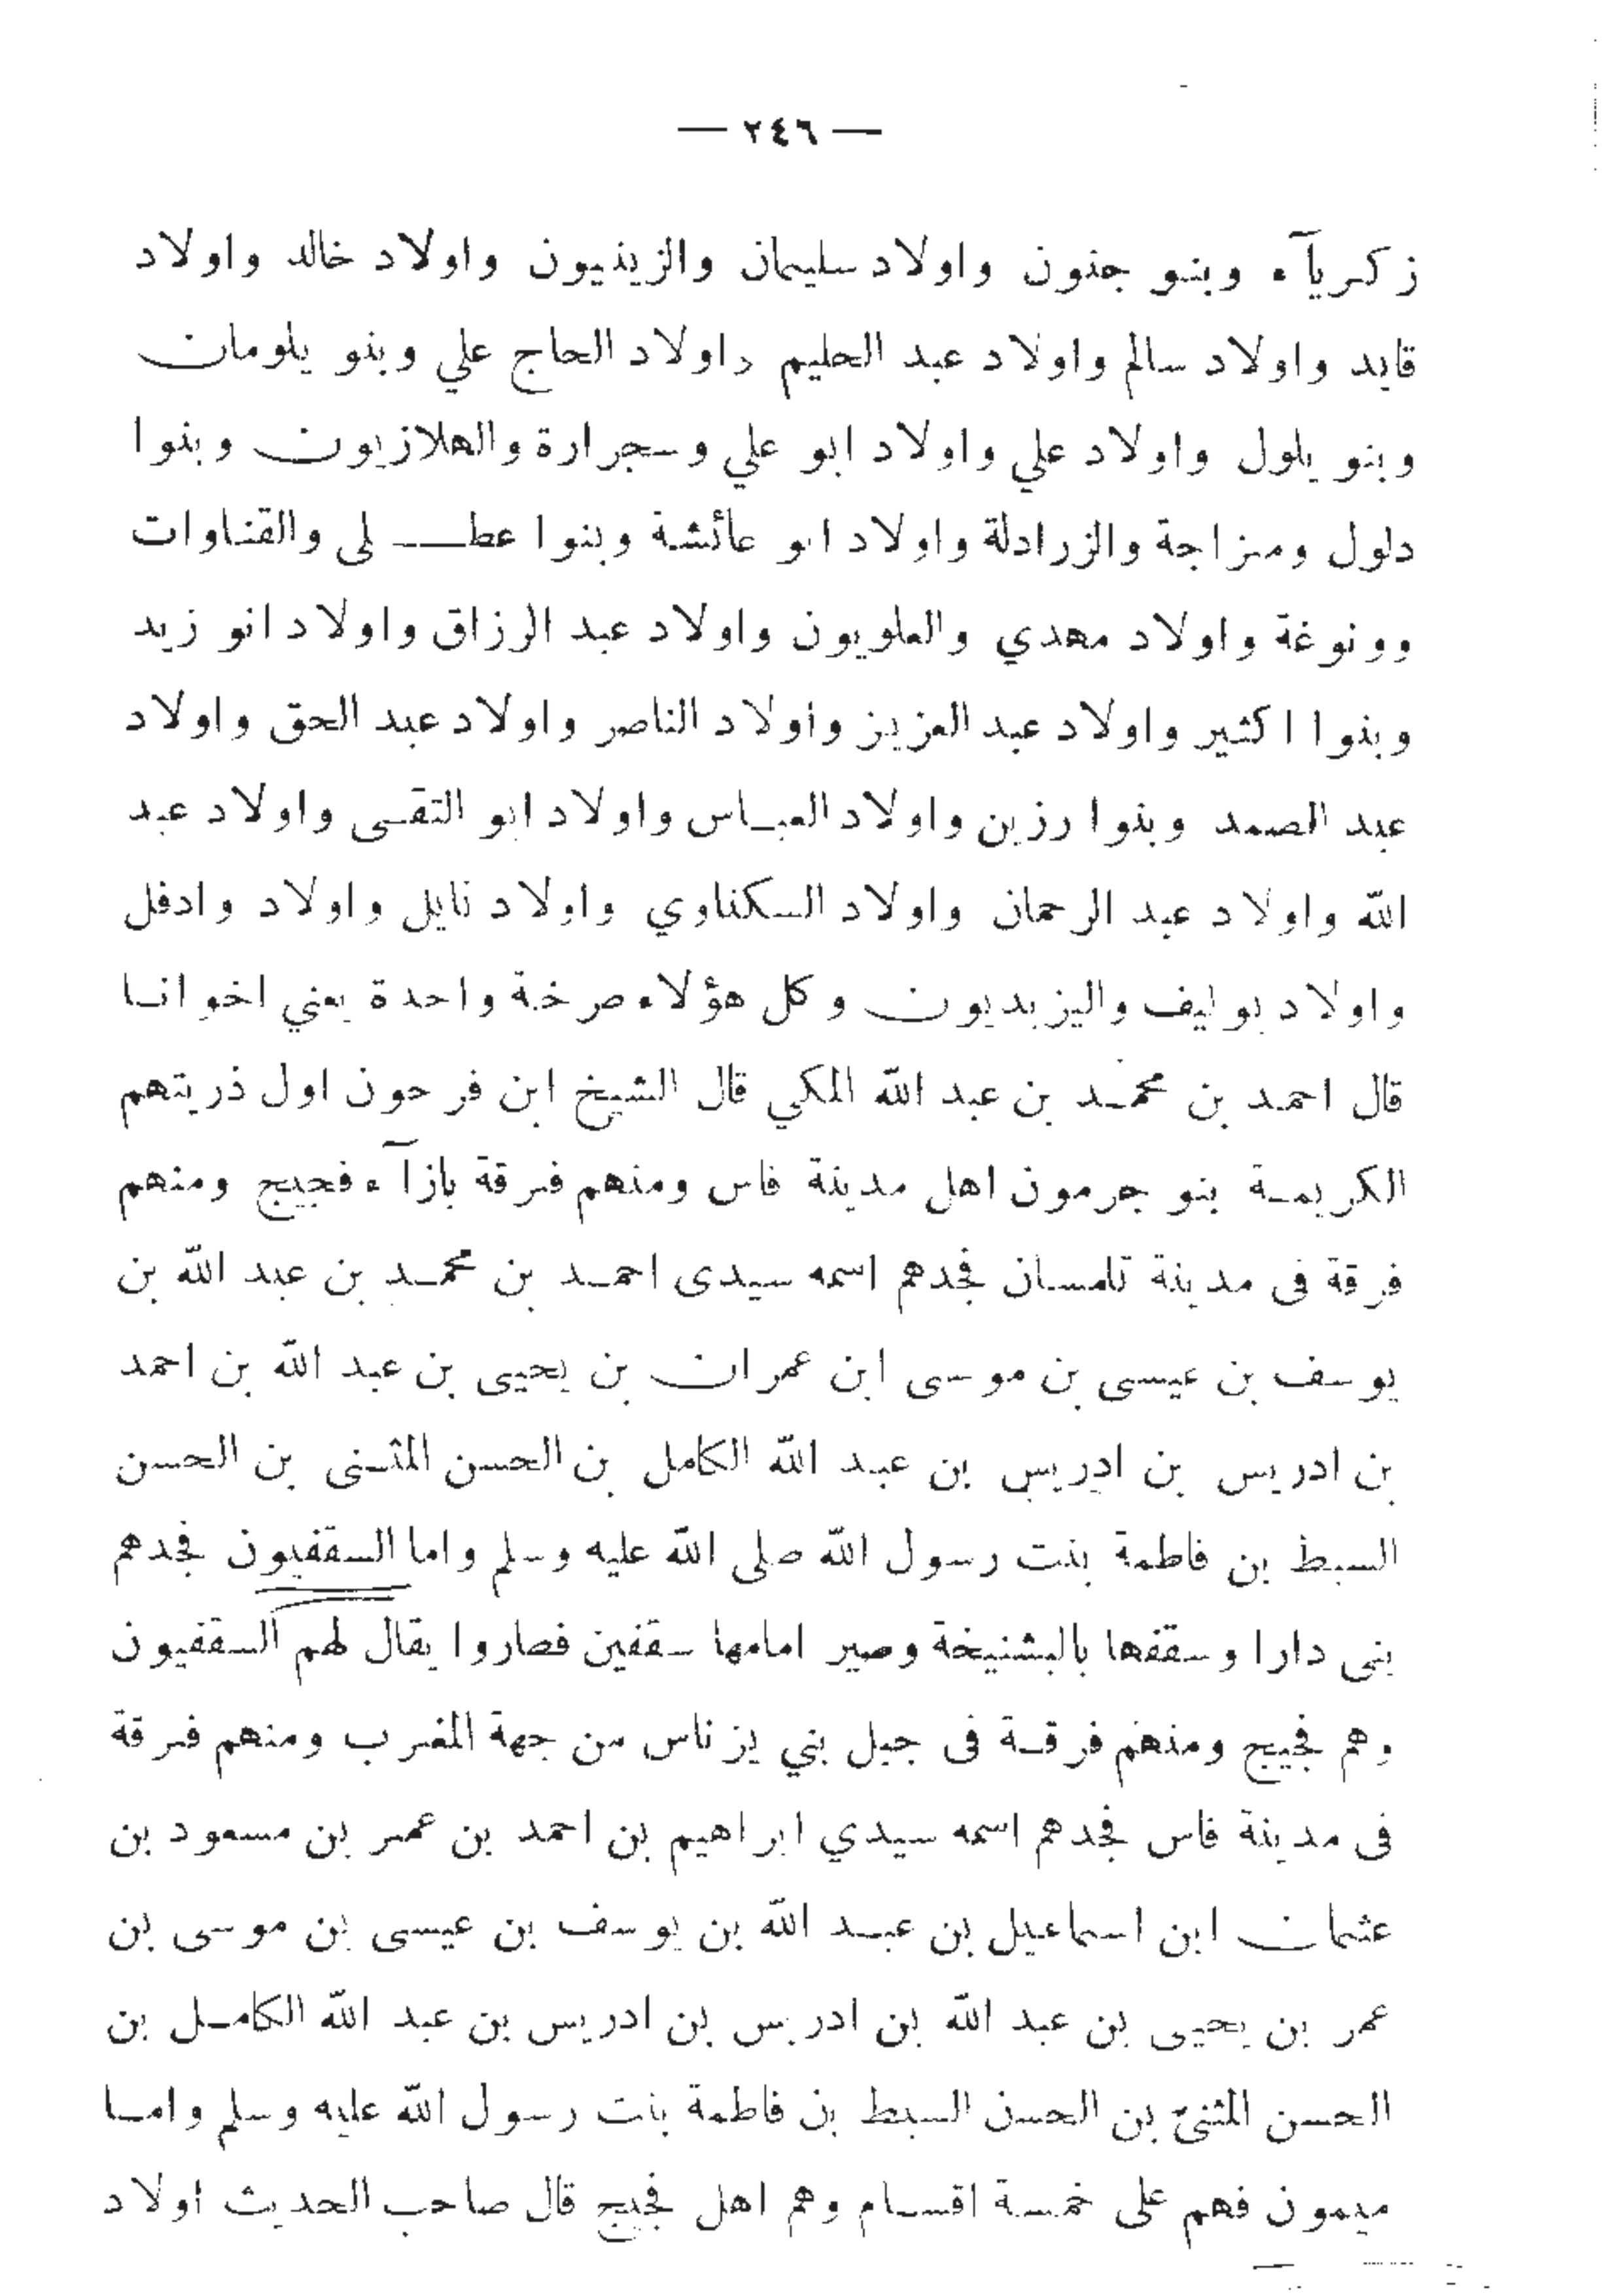 — ٢٤٦ —
زكرياآء وبنو جنون واولاد سليمان والزينيون واولاد خالد واولاد
قايد واولاد سالم واولاد عبد الحليم واولاد الحاج علي وبنو يلومان
وبنو يلول واولاد علي واولاد ابو علي وسجرارة والهلازيون وبنوا
دلول ومزاجة والزرادلة واولاد ابو عائشة وبنوا عطــ لى والقناوات
وونوغة واولاد مهدي والعلويون واولاد عبد الرزاق واولاد انو زيد
وبنوا اكثير واولاد عبد العزيز واولاد الناصر واولاد عبد الحق واولاد
عبد الصمد وبنوا رزين واولاد العباس واولاد ابو التقى واولاد عبد
الله واولاد عبد الرحمان واولاد السكناوي واولاد نايل واولاد وادفل
واولاد بوليف واليزيديون وكل هؤلاء صرخة واحدة يعني اخوانا
قال احمد بن محمد بن عبد الله المكي قال الشيخ ابن فرحون اول ذريتهم
الكريمة بنو جرمون اهل مدينة فاس ومنهم فرقة بازآء فجيج ومنهم
فرقة فى مدينة تلمسان فجدهم اسمه سيدى احمد بن محمد بن عبد الله بن
يوسف بن عيسى بن موسى ابن عمران بن يحيى بن عبد الله بن احمد
بن ادريس بن ادريس بن عبد الله الكامل بن الحسن المثنى بن الحسن
السبط بن فاطمة بنت رسول الله صلى الله عليه وسلم واما السقفيون فجدهم
بنى دارا وسقفها بالبشنيخة وصير امامها سقفين فصاروا يقال لهم السقفيون
وهم فجيج ومنهم فرقة فى جبل بني يزناس من جهة المغرب ومنهم فرقة
فى مدينة فاس فجدهم اسمه سيدي ابراهيم بن احمد بن عمر بن مسعود بن
عثمان ابن اسماعيل بن عبد الله بن يوسف بن عيسى بن موسى بن
عمر بن يحيى بن عبد الله بن ادريس بن ادريس بن عبد الله الكامل بن
الحسن المثنىّ بن الحسن السبط بن فاطمة بنت رسول الله عليه وسلم واما
ميمون فهم على خمسة اقسام وهم اهل فجيج قال صاحب الحديث اولاد